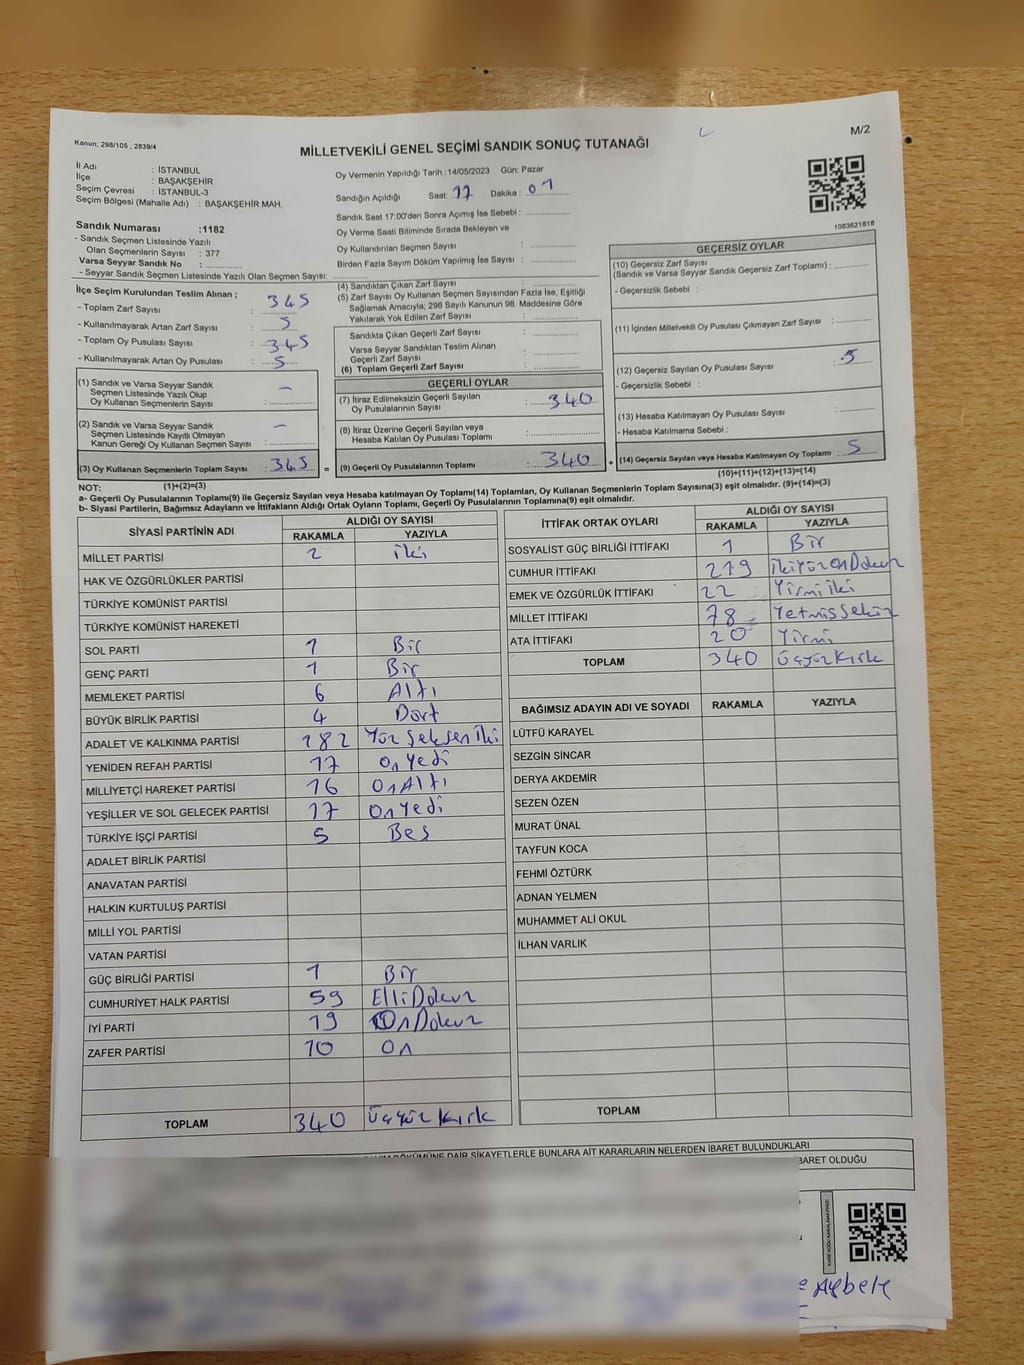 Kanun; 298/105 , 2839/4
MİLLETVEKİLİ GENEL SEÇİMİ SANDIK SONUÇ TUTANAĞI
M/2
İl Adı : İSTANBUL
İlçe : BAŞAKŞEHİR
Seçim Çevresi : İSTANBUL-3
Seçim Bölgesi (Mahalle Adı) : BAŞAKŞEHİR MAH.
Sandık Numarası :1182
- Sandık Seçmen Listesinde Yazılı
Olan Seçmenlerin Sayısı : 377
Varsa Seyyar Sandık No :
- Seyyar Sandık Seçmen Listesinde Yazılı Olan Seçmen Sayısı:
Oy Vermenin Yapıldığı Tarih :14/05/2023 Gün: Pazar
Sandığın Açıldığı Saat: 17 Dakika : 01
Sandık Saat 17:00'den Sonra Açımış İse Sebebi :
Oy Verme Saati Bitiminde Sırada Bekleyen ve
Oy Kullandırılan Seçmen Sayısı :
Birden Fazla Sayım Döküm Yapılmış İse Sayısı :
1083621818
İlçe Seçim Kurulundan Teslim Alınan ;
- Toplam Zarf Sayısı : 345
- Kullanılmayarak Artan Zarf Sayısı : 5
- Toplam Oy Pusulası Sayısı : 345
- Kullanılmayarak Artan Oy Pusulası : 5
(1) Sandık ve Varsa Seyyar Sandık
Seçmen Listesinde Yazılı Olup
Oy Kullanan Seçmenlerin Sayısı : —
(2) Sandık ve Varsa Seyyar Sandık
Seçmen Listesinde Kayıtlı Olmayan
Kanun Gereği Oy Kullanan Seçmen Sayısı : —
(3) Oy Kullanan Seçmenlerin Toplam Sayısı : 345 =
(1)+(2)=(3)
(4) Sandıktan Çıkan Zarf Sayısı :
(5) Zarf Sayısı Oy Kullanan Seçmen Sayısından Fazla İse, Eşitliği
Sağlamak Amacıyla; 298 Sayılı Kanunun 98. Maddesine Göre
Yakılarak Yok Edilen Zarf Sayısı :
Sandıkta Çıkan Geçerli Zarf Sayısı :
Varsa Seyyar Sandıktan Teslim Alınan
Geçerli Zarf Sayısı :
(6) Toplam Geçerli Zarf Sayısı :
GEÇERLİ OYLAR
(7) İtiraz Edilmeksizin Geçerli Sayılan
Oy Pusulalarının Sayısı : 340
(8) İtiraz Üzerine Geçerli Sayılan veya
Hesaba Katılan Oy Pusulası Toplamı :
(9) Geçerli Oy Pusulalarının Toplamı : 340 +
GEÇERSİZ OYLAR
(10) Geçersiz Zarf Sayısı
(Sandık ve Varsa Seyyar Sandık Geçersiz Zarf Toplamı) :
- Geçersizlik Sebebi :
(11) İçinden Milletvekili Oy Pusulası Çıkmayan Zarf Sayısı :
(12) Geçersiz Sayılan Oy Pusulası Sayısı : 5
- Geçersizlik Sebebi :
(13) Hesaba Katılmayan Oy Pusulası Sayısı :
- Hesaba Katılmama Sebebi :
(14) Geçersiz Sayılan veya Hesaba Katılmayan Oy Toplamı : 5
(10)+(11)+(12)+(13)=(14)
NOT:
a- Geçerli Oy Pusulalarının Toplamı(9) ile Geçersiz Sayılan veya Hesaba katılmayan Oy Toplamı(14) Toplamları, Oy Kullanan Seçmenlerin Toplam Sayısına(3) eşit olmalıdır. (9)+(14)=(3)
b- Siyasi Partilerin, Bağımsız Adayların ve İttifakların Aldığı Oyların Toplamı, Geçerli Oy Pusulalarının Toplamına(9) eşit olmalıdır.
SİYASİ PARTİNİN ADI ALDIĞI OY SAYISI
RAKAMLA YAZIYLA
MİLLET PARTİSİ 2 iki
HAK VE ÖZGÜRLÜKLER PARTİSİ
TÜRKİYE KOMÜNİST PARTİSİ
TÜRKİYE KOMÜNİST HAREKETİ
SOL PARTİ 1 Bir
GENÇ PARTİ 1 Bir
MEMLEKET PARTİSİ 6 Altı
BÜYÜK BİRLİK PARTİSİ 4 Dört
ADALET VE KALKINMA PARTİSİ 182 Yüz Seksen İki
YENİDEN REFAH PARTİSİ 17 On Yedi
MİLLİYETÇİ HAREKET PARTİSİ 16 On Altı
YEŞİLLER VE SOL GELECEK PARTİSİ 17 On Yedi
TÜRKİYE İŞÇİ PARTİSİ 5 Beş
ADALET BİRLİK PARTİSİ
ANAVATAN PARTİSİ
HALKIN KURTULUŞ PARTİSİ
MİLLİ YOL PARTİSİ
VATAN PARTİSİ
GÜÇ BİRLİĞİ PARTİSİ 1 Bir
CUMHURİYET HALK PARTİSİ 59 Elli Dokuz
İYİ PARTİ 19 On Dokuz
ZAFER PARTİSİ 10 On
TOPLAM 340 üçyüz kırk
İTTİFAK ORTAK OYLARI ALDIĞI OY SAYISI
RAKAMLA YAZIYLA
SOSYALİST GÜÇ BİRLİĞİ İTTİFAKI 1 Bir
CUMHUR İTTİFAKI 219 ikiYüz On Dokuz
EMEK VE ÖZGÜRLÜK İTTİFAKI 22 Yirmi iki
MİLLET İTTİFAKI 78 Yetmiş Sekiz
ATA İTTİFAKI 20 Yirmi
TOPLAM 340 üçyüz Kırk
BAĞIMSIZ ADAYIN ADI VE SOYADI RAKAMLA YAZIYLA
LÜTFÜ KARAYEL
SEZGİN SİNCAR
DERYA AKDEMİR
SEZEN ÖZEN
MURAT ÜNAL
TAYFUN KOCA
FEHMİ ÖZTÜRK
ADNAN YELMEN
MUHAMMET ALİ OKUL
İLHAN VARLIK
TOPLAM
DÖKÜMÜNE DAİR ŞİKAYETLERLE BUNLARA AİT KARARLARIN NELERDEN İBARET BULUNDUKLARI
BARET OLDUĞU